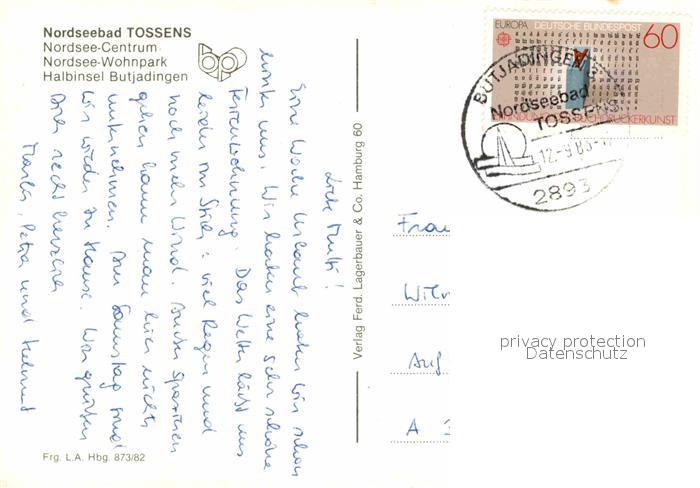 Nordseebad TOSSENS
Nordsee-Centrum
Nordsee-Wohnpark
Halbinsel Butjadingen
Liebe Mutti!
Eine Woche Urlaub haben wir schon
hinter uns. Wir haben eine sehr schöne
Ferienwohnung. Das Wetter läßt uns
leider im Stich: viel Regen und
noch mehr Wind. Außer Spazieren
gehen kann man hier nichts
unternehmen. Am Samstag sind
wir wieder zu Hause. Wir grüßen
Dich recht herzlich
Petra und Helmut
Frg. L.A. Hbg. 873/82
Verlag Ferd. Lagerbauer & Co. Hamburg 60
EUROPA DEUTSCHE BUNDESPOST 60
BUCHDRUCKERKUNST
BUTJADINGEN
Nordseebad
TOSSENS
12.-9.83
2893
Frau
Auf
A
privacy protection
Datenschutz